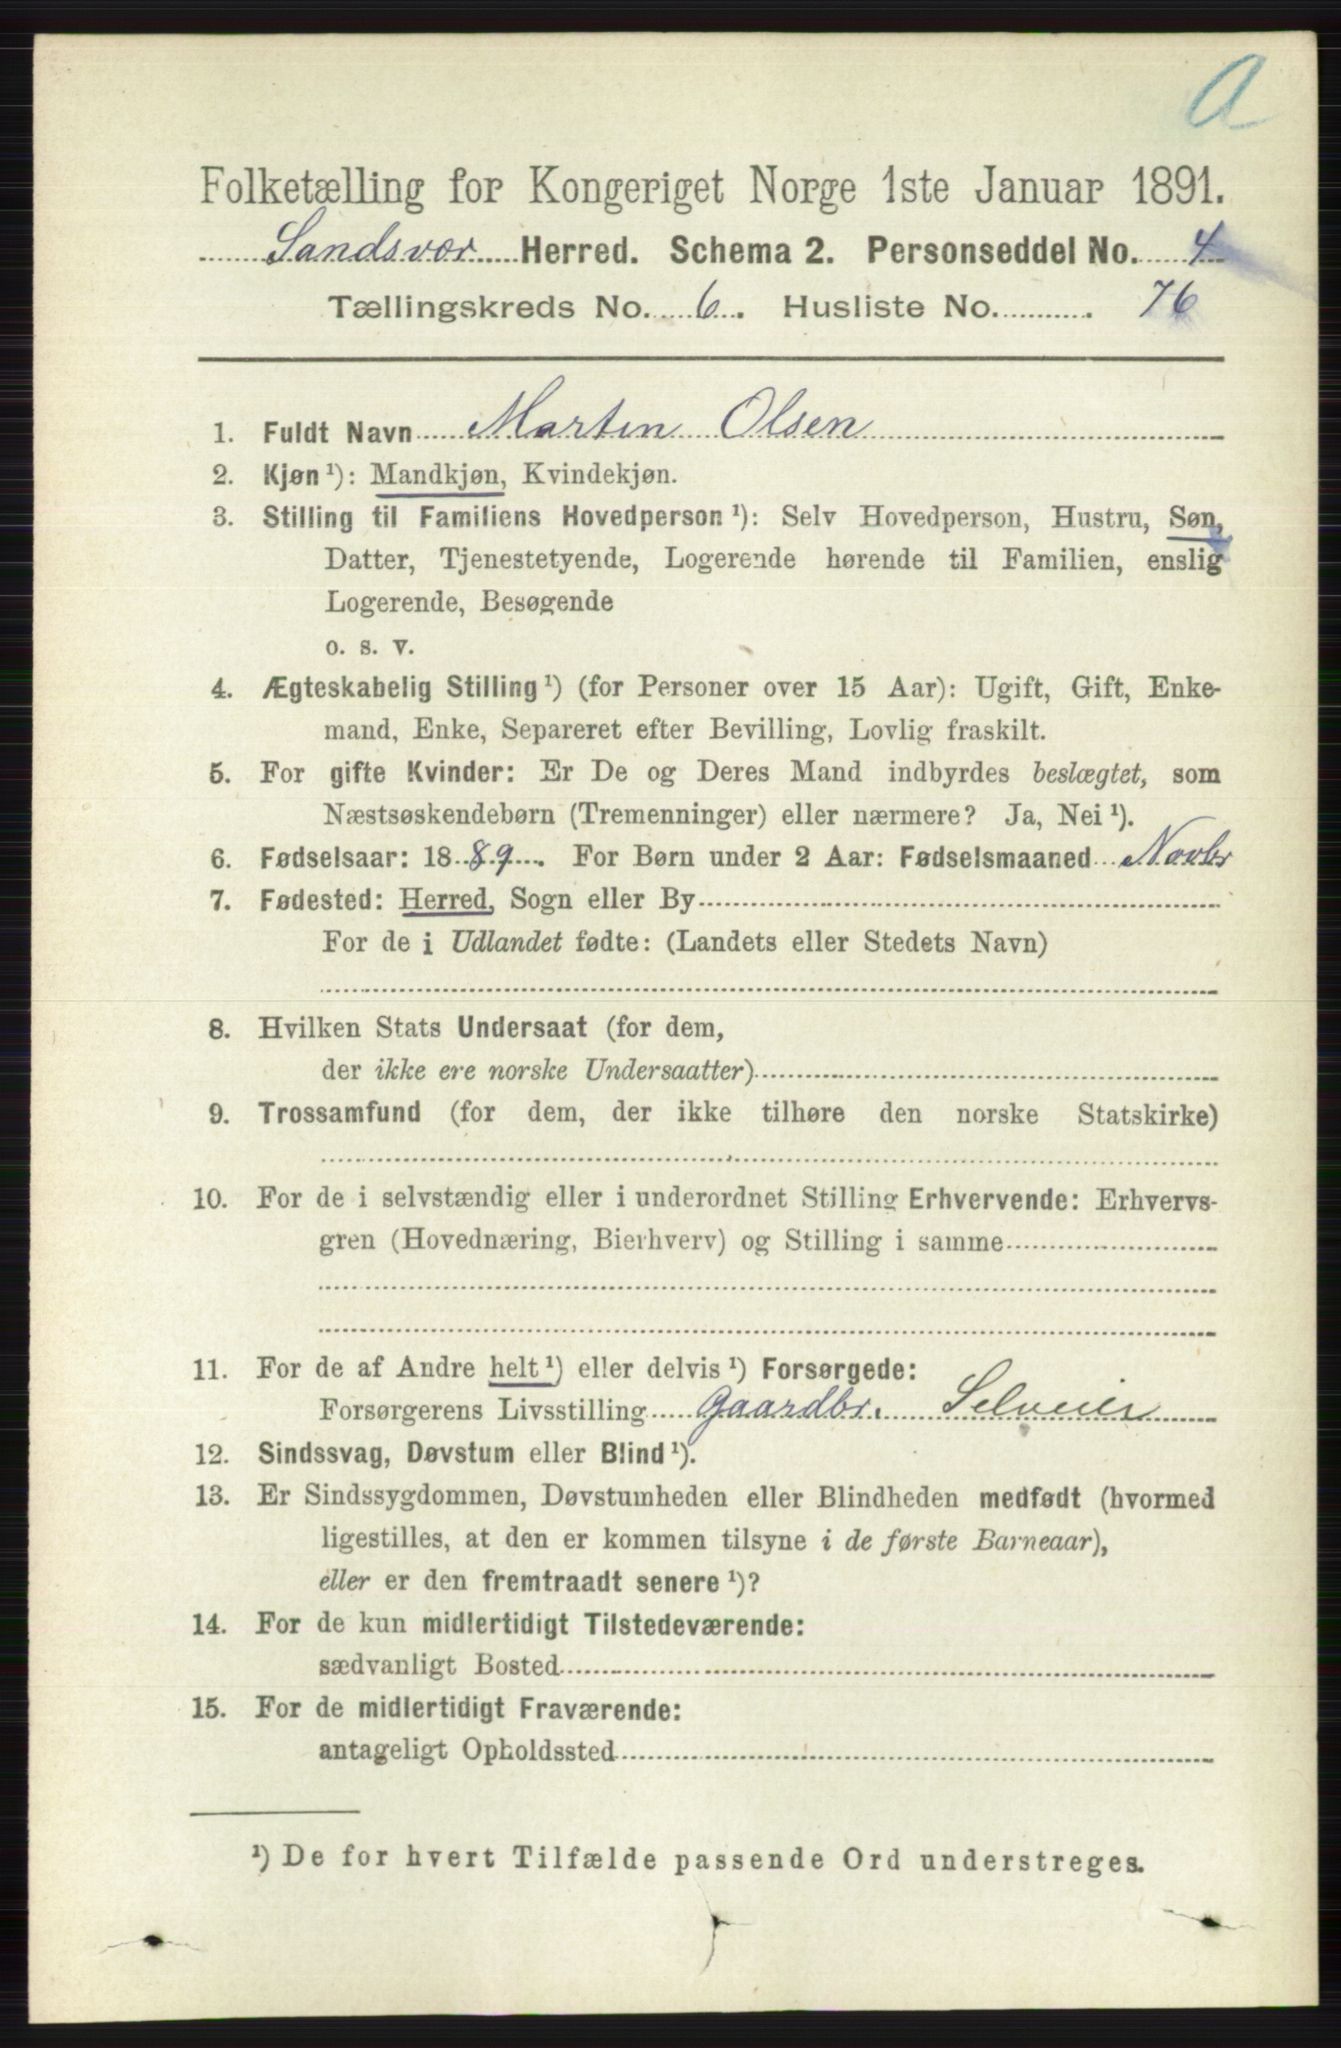 a
Folketælling for Kongeriget Norge 1ste Januar 1891.
Sandsvær Herred. Schema 2. Personseddel No. 4
Tællingskreds No. 6. Husliste No. 76
1. Fuldt Navn Martin Olsen
2. Kjøn ¹): Mandkjøn, Kvindekjøn.
3. Stilling til Familiens Hovedperson ¹): Selv Hovedperson, Hustru, Søn,
Datter, Tjenestetyende, Logerende hørende til Familien, enslig
Logerende, Besøgende
o. s. v.
4. Ægteskabelig Stilling ¹) (for Personer over 15 Aar): Ugift, Gift, Enke-
mand, Enke, Separeret efter Bevilling, Lovlig fraskilt.
5. For gifte Kvinder: Er De og Deres Mand indbyrdes beslægtet, som
Næstsøskendebørn (Tremenninger) eller nærmere? Ja, Nei ¹).
6. Fødselsaar: 1889. For Børn under 2 Aar: Fødselsmaaned Novbr
7. Fødested: Herred, Sogn eller By
For de i Udlandet fødte: (Landets eller Stedets Navn)
8. Hvilken Stats Undersaat (for dem,
der ikke ere norske Undersaatter)
9. Trossamfund (for dem, der ikke tilhøre den norske Statskirke)
10. For de i selvstændig eller i underordnet Stilling Erhvervende: Erhvervs-
gren (Hovednæring, Bierhverv) og Stilling i samme
11. For de af Andre helt ¹) eller delvis ¹) Forsørgede:
Forsørgerens Livsstilling Gaardbr. Selveier
12. Sindssvag, Døvstum eller Blind ¹).
13. Er Sindssygdommen, Døvstumheden eller Blindheden medfødt (hvormed
ligestilles, at den er kommen tilsyne i de første Barneaar),
eller er den fremtraadt senere ¹)?
14. For de kun midlertidigt Tilstedeværende:
sædvanligt Bosted
15. For de midlertidigt Fraværende:
antageligt Opholdssted
¹) De for hvert Tilfælde passende Ord understreges.